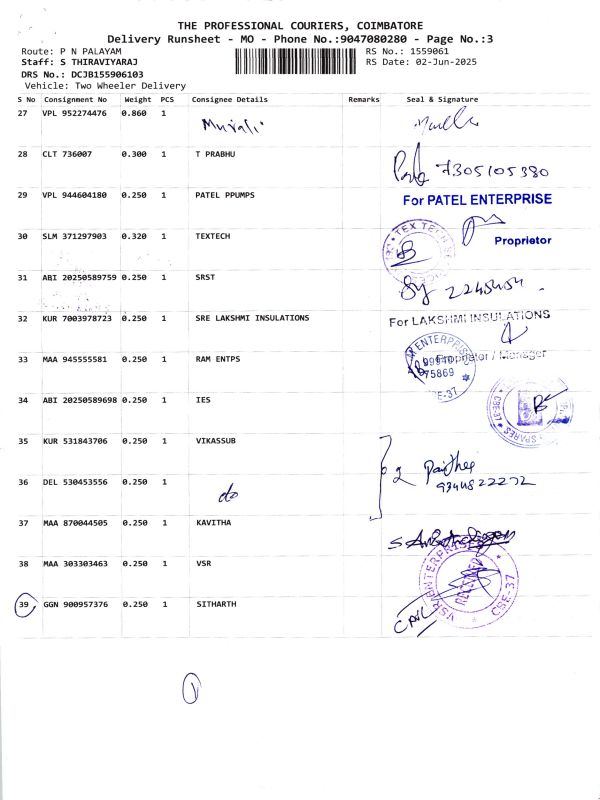 THE PROFESSIONAL COURIERS, COIMBATORE
Delivery Runsheet - MO - Phone No.:9047080280 - Page No.:3
Route: P N PALAYAM
RS No.: 1559061
Staff: S THIRAVIYARAJ
RS Date: 02-Jun-2025
DRS No.: DCJB155906103
Vehicle: Two Wheeler Delivery
S No Consignment No Weight PCS Consignee Details Remarks Seal & Signature
27 VPL 952274476 0.860 1 Murali
28 CLT 736007 0.300 1 T PRABHU 7305105380
29 VPL 944604180 0.250 1 PATEL PPUMPS For PATEL ENTERPRISE
Proprietor
30 SLM 371297903 0.320 1 TEXTECH TEX TECH
31 ABI 20250589759 0.250 1 SRST
32 KUR 7003978723 0.250 1 SRE LAKSHMI INSULATIONS For LAKSHMI INSULATIONS
Proprietor / Manager
33 MAA 945555581 0.250 1 RAM ENTPS ENTERPRISE
75869
34 ABI 20250589698 0.250 1 IES
SPARES
35 KUR 531843706 0.250 1 VIKASSUB
36 DEL 530453556 0.250 1 do 2 9344822272
37 MAA 870044505 0.250 1 KAVITHA
38 MAA 303303463 0.250 1 VSR VSR ENTERPRISE RECEIVED CSE-37
39 GGN 900957376 0.250 1 SITHARTH
1